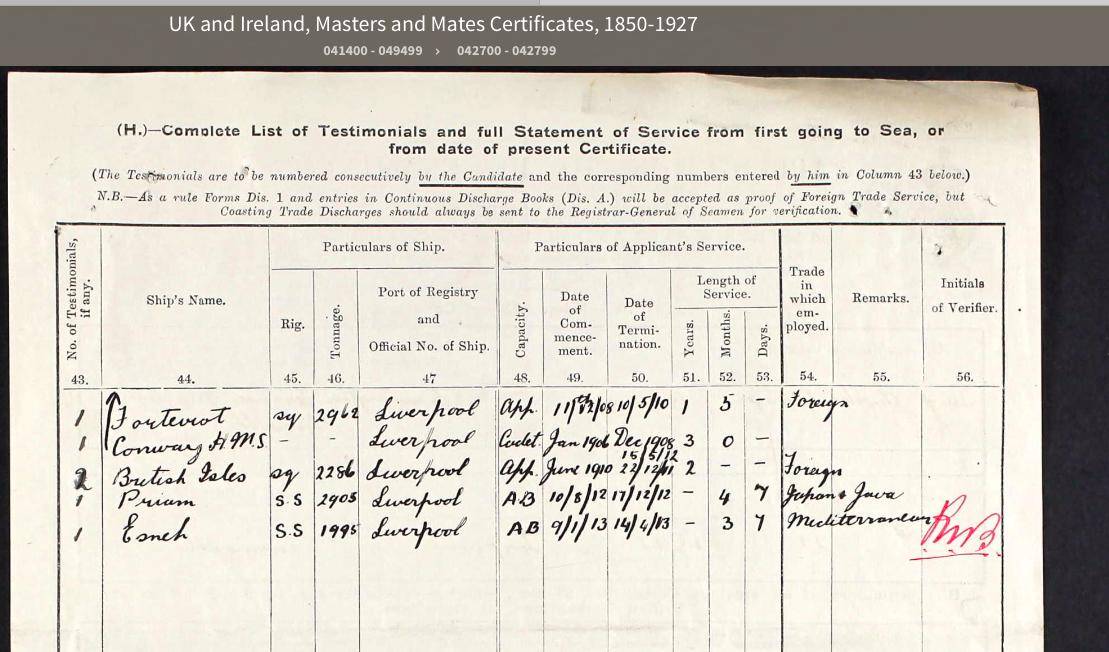 UK and Ireland, Masters and Mates Certificates, 1850-1927
041400 - 049499 › 042700 - 042799
(H.)—Complete List of Testimonials and full Statement of Service from first going to Sea, or
from date of present Certificate.
(The Testimonials are to be numbered consecutively by the Candidate and the corresponding numbers entered by him in Column 43 below.)
N.B.—As a rule Forms Dis. 1 and entries in Continuous Discharge Books (Dis. A.) will be accepted as proof of Foreign Trade Service, but
Coasting Trade Discharges should always be sent to the Registrar-General of Seamen for verification.
No. of Testimonials, if any. Ship's Name. Particulars of Ship. Particulars of Applicant's Service. Trade in which em-ployed. Remarks. Initials of Verifier.
Rig. Tonnage. Port of Registry and Official No. of Ship. Capacity. Date of Com-mence-ment. Date of Termi-nation. Length of Service. Years. Months. Days.
43. 44. 45. 46. 47 48. 49. 50. 51. 52. 53. 54. 55. 56.
1 Forteviot sq 2962 Liverpool App. 10/5/10 1 5 – Foreign
1 Conway H.M.S – – Liverpool Cadet Jan 1906 Dec 1908 3 0 –
2 British Isles sq 2286 Liverpool App. June 1910 15/5/12 2 – – Foreign
1 Priam S.S 2905 Liverpool A.B 10/8/12 17/12/12 – 4 7 Japan & Java
1 Esneh S.S 1995 Liverpool AB 9/1/13 14/4/13 – 3 7 Mediterranean